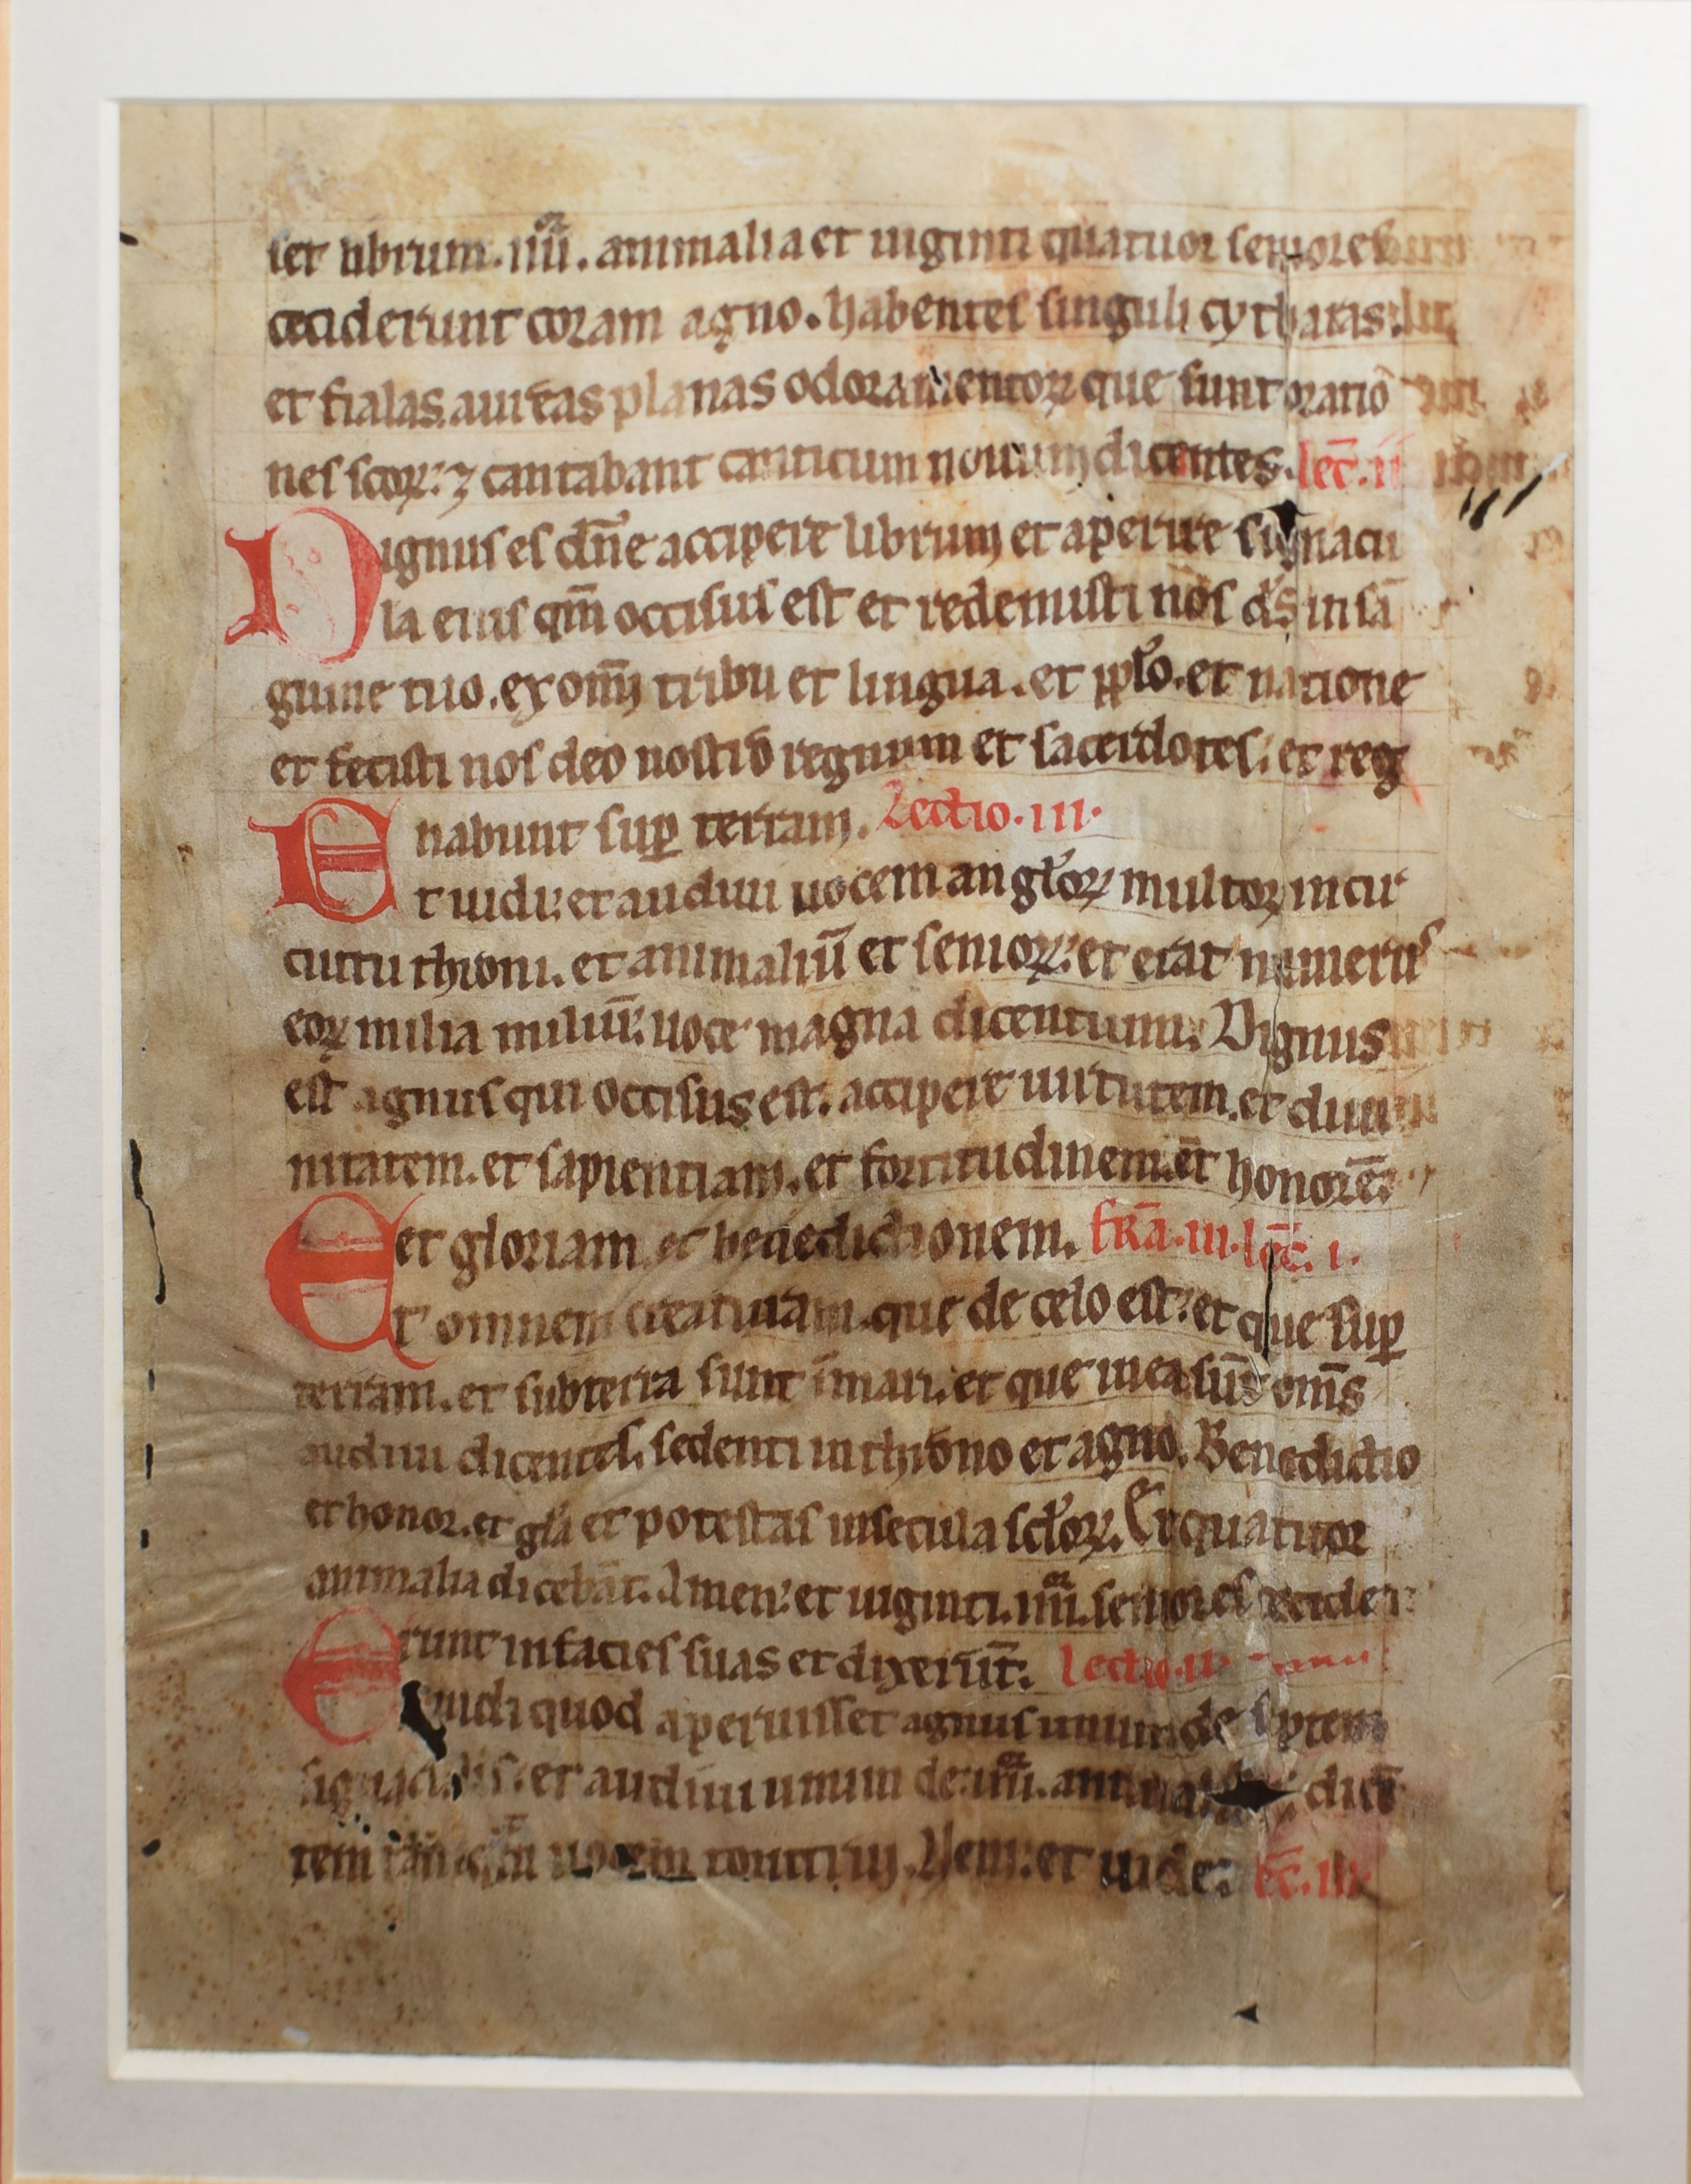 set librum. iiii^or. animalia et uiginti quatuor seniores
ceciderunt coram agno. habentes singuli cytharas.
et fialas aureas planas odoramentoꝝ que sunt oratiō
nes scōꝝ: ⁊ cantabant canticum nouum dicentes. lec̄. ii
Dignus es dn̄e accipere librum et aperire signacu
la eius qm̄ occisus est et redemisti nos d̄s in sā
guine tuo. ex om̄i tribu et lingua. et pplo. et natione
et fecisti nos deo nostro regnum et sacerdotes. et reg
nabunt suꝑ terram. Lectio. iii.
Et uidi: et audiui uocem angloꝝ multoꝝ in cir
cuitu throni. et animaliū et senioꝝ: et erat numerus
eoꝝ milia miliū: uoce magna dicentium. Dignus
est agnus qui occisus est. accipere uirtutem. et diui
nitatem. et sapientiam. et fortitudinem. et honorē.
et gloriam et benedictionem. fr̄a. iii. lec̄. i.
Et omnem creaturam. que de celo est: et que suꝑ
terram. et sub terra sunt ī mari. et que in ea sūt om̄s
audiui dicentes. sedenti in throno et agno. Benedictio
et honor. et gl̄a et potestas in secula scloꝝ. Et quatuor
animalia dicebāt. Amen: et uiginti. iiii^or. seniores cecide
runt in facies suas et dixerūt. Lectio. ii.
Et uidi quod aperuisset agnus unum de septem
signaculis: et audiui unum de. iiii^or. animalibus dicē
tem tamquam uocem tonitrui. Ueni: et uide: lec̄. iii.